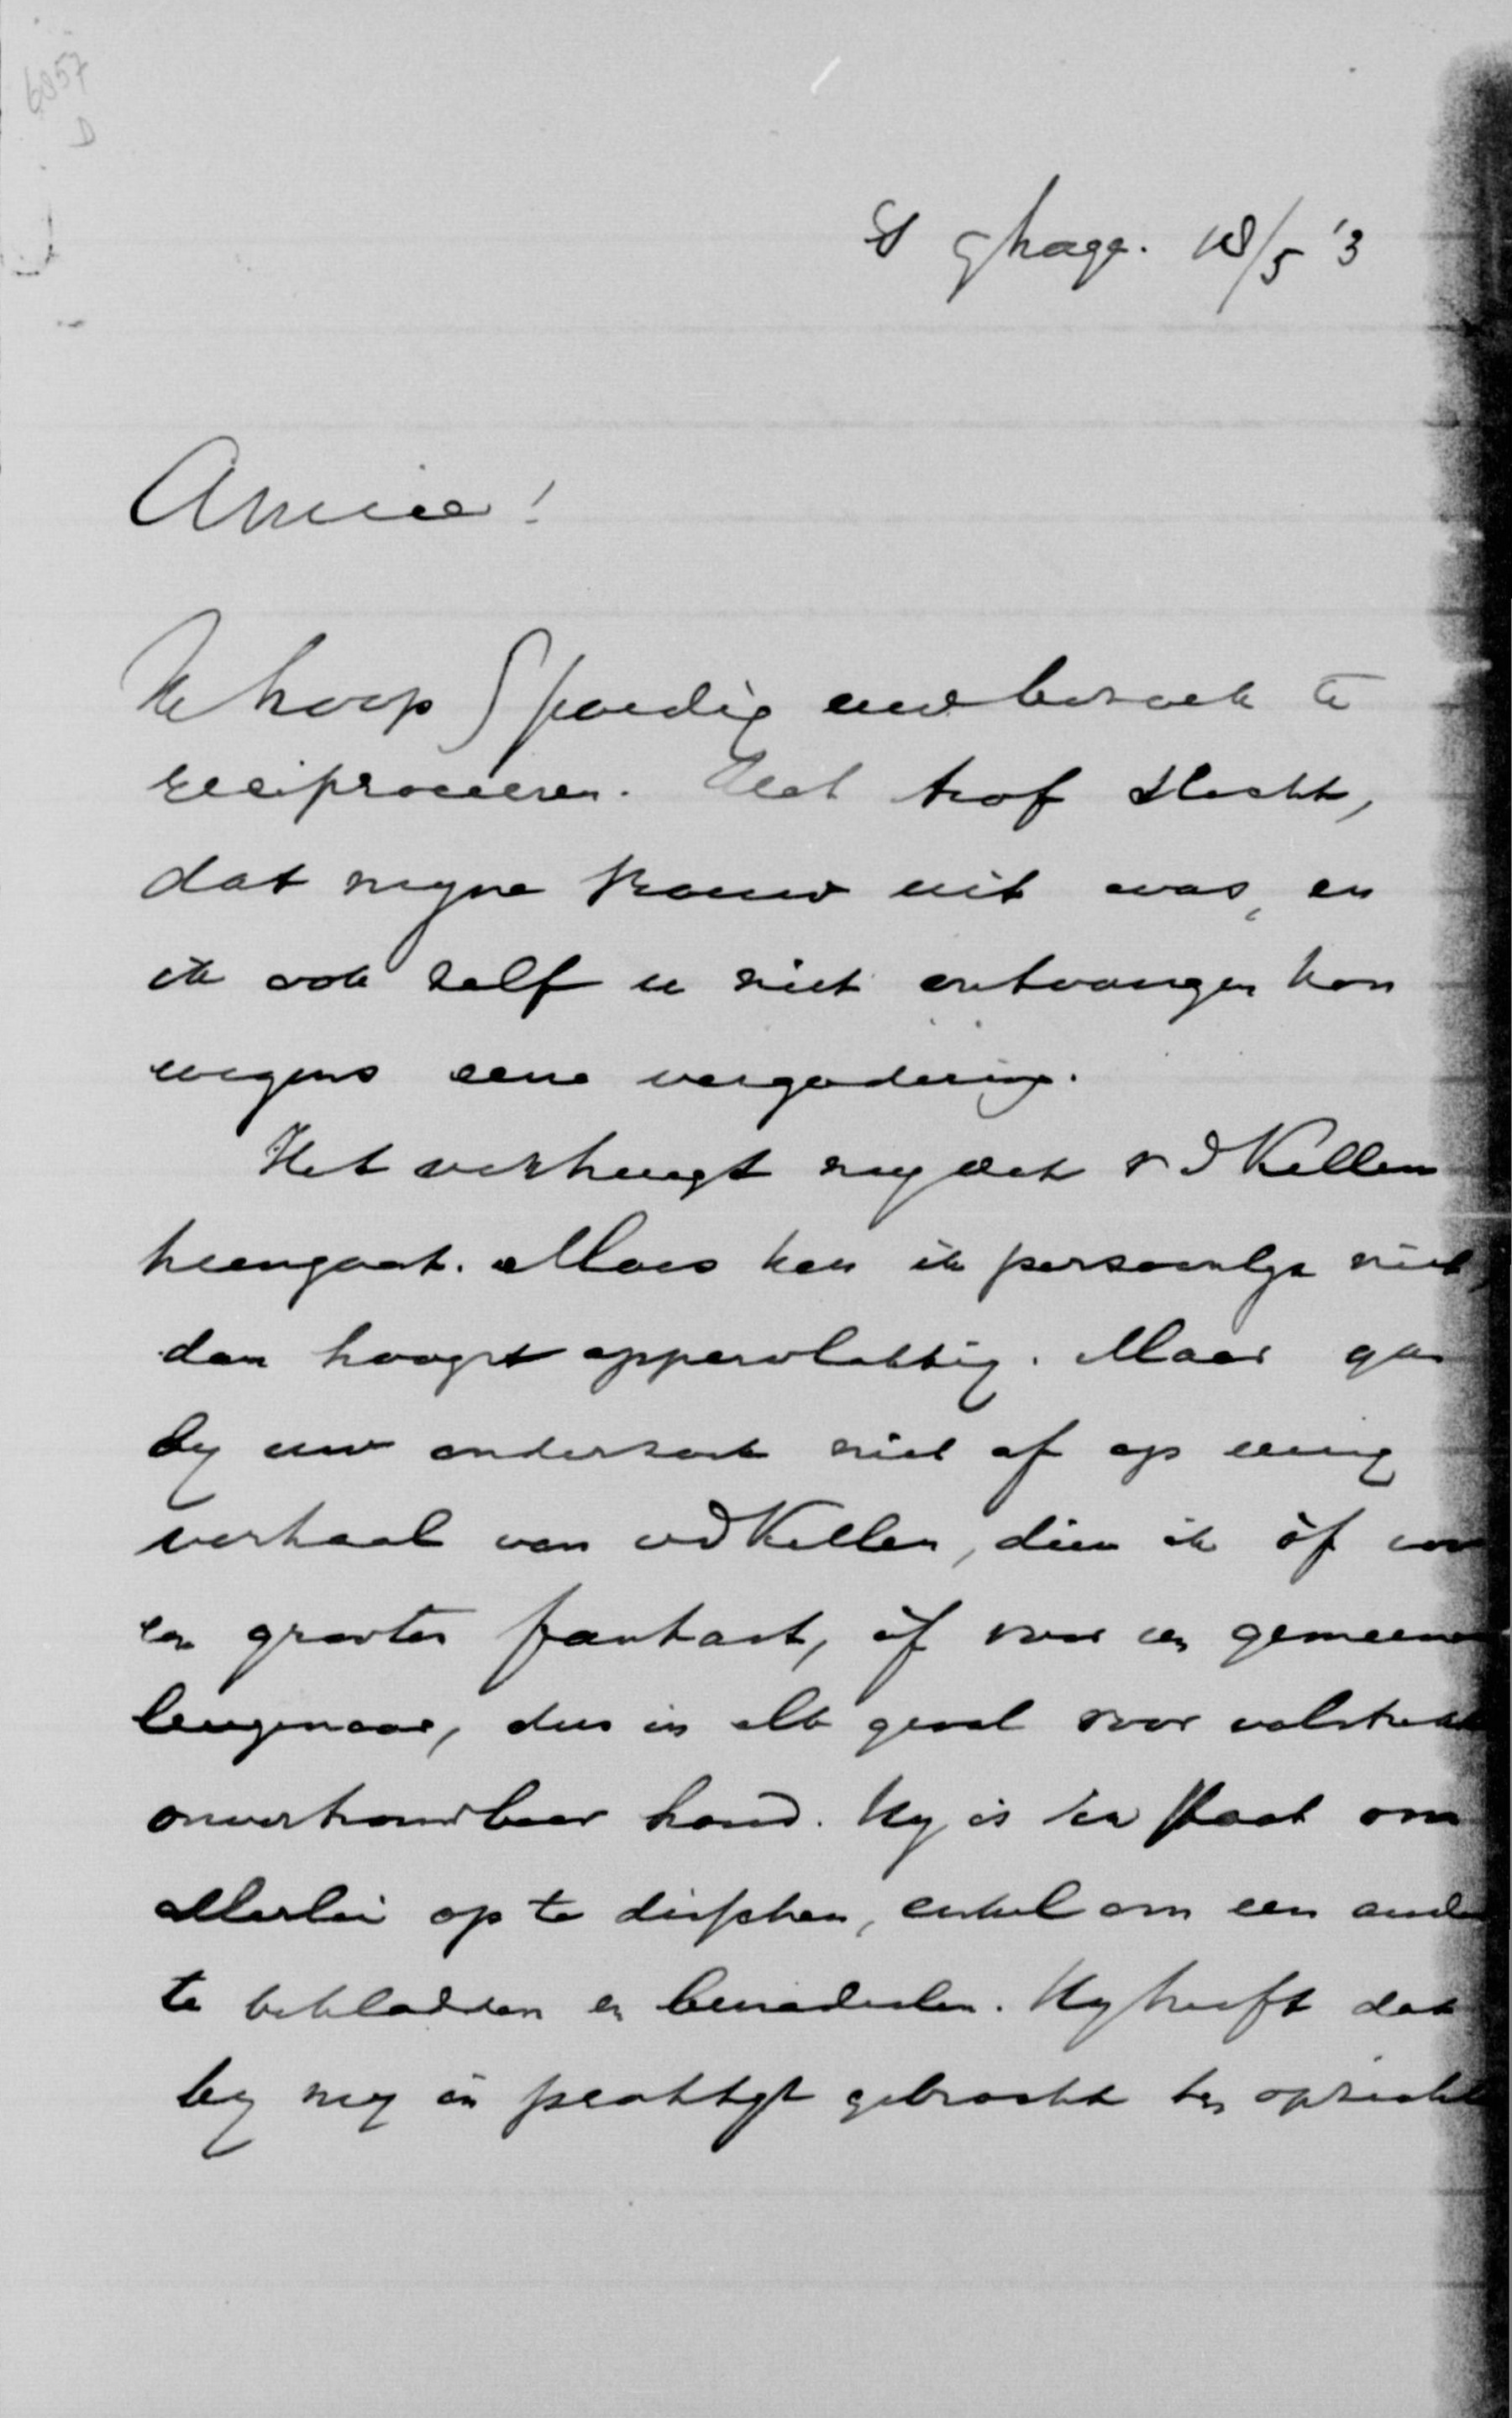 6857
D
Sghage. 18/5 '3
Amice!
Ik hoop spoedig uw bezoek te
reciproceeren. Het trof slecht,
dat myne vrouw uit was, en
ik ook zelf u niet ontvangen kon
wegens eene vergadering.
Het verheugt my dat v d Kellen
heengaat. Moes ken ik persoonlyk niet,
dan hoogst oppervlakkig. Maar ga
by uw onderzoek niet af op eenig
verhaal van vd Kellen, dien ik òf voor
een grooten fantast, òf voor een gemeenen
leugenaar, dus in elk geval voor volstrekt
onvertrouwbaar houd. Hy is in staat om
allerlei op te disschen, enkel om een ander
te bekladden en benadeelen. Hy heeft dat
by my in praktyk gebracht ten opzichte